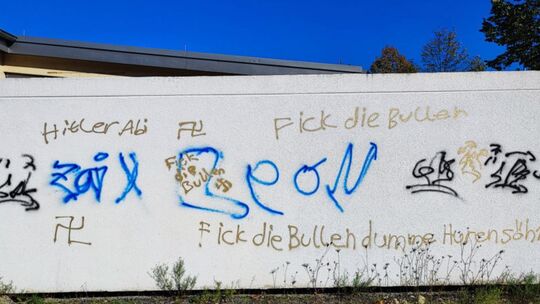 Hitler Abi
Fick die Bullen
Fick die Bullen
Leon
Fick die Bullen dumme Hurensöh